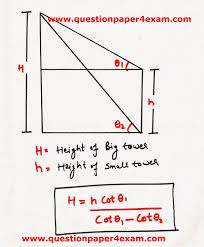 www.questionpaper4exam.com
H
θ₁
h
θ₂
H = Height of Big tower
h = Height of Small tower
H = h Cotθ₁ / Cotθ₁ - Cotθ₂
www.questionpaper4exam.com